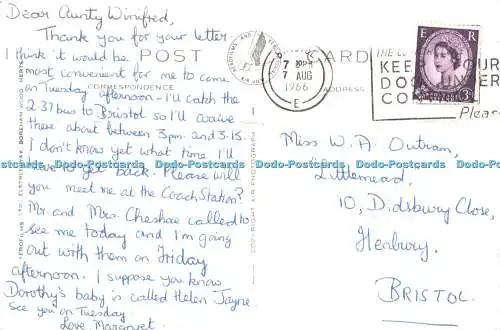 Dear Aunty Winifred,
Thank you for your letter
I think it would be
most convenient for me to come
on Tuesday afternoon - I'll catch the
2.37 bus to Bristol so I'll arrive
there about between 3pm and 3.15.
I don't know yet what time I'll
have to get back. Please will
you meet me at the Coach Station?
Mr and Mrs. Cheshae called to
see me today and I'm going
out with them on Friday
afternoon. I suppose you know
Dorothy's baby is called Helen Jayne.
See you on Tuesday
Love Margaret.
POST CARD
CORRESPONDENCE
ADDRESS
COPYRIGHT AIR PHOTOGRAPH
AEROFILMS LTD. ELSTREE WAY, BOREHAM WOOD, HERTS
7 AUG
1966
E
KEEP YOUR
Please
E R
3D
Miss W. A. Outram,
Littlemead,
10, Didsbury Close,
Henbury,
BRISTOL.
Dodo-Postcards Dodo-Postcards Dodo-Postcards Dodo-Postcards Dodo-Postcards